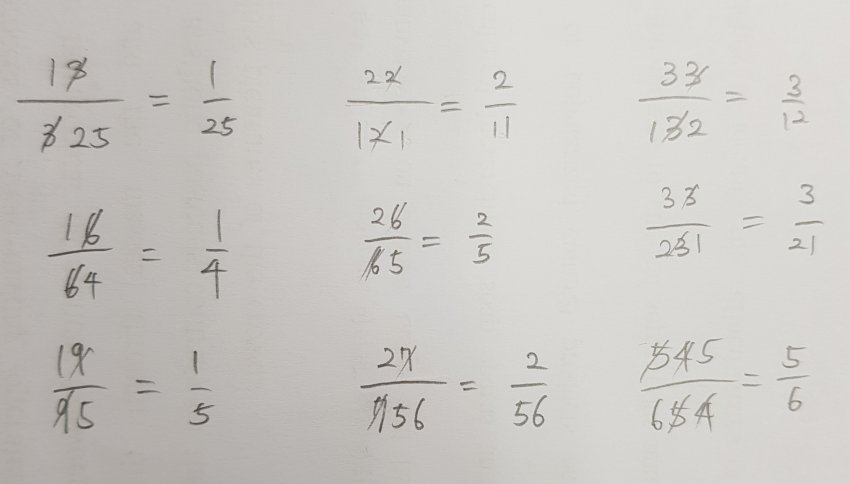 13/325 = 1/25 22/121 = 2/11 33/132 = 3/12
16/64 = 1/4 26/65 = 2/5 33/231 = 3/21
19/95 = 1/5 27/756 = 2/56 545/654 = 5/6